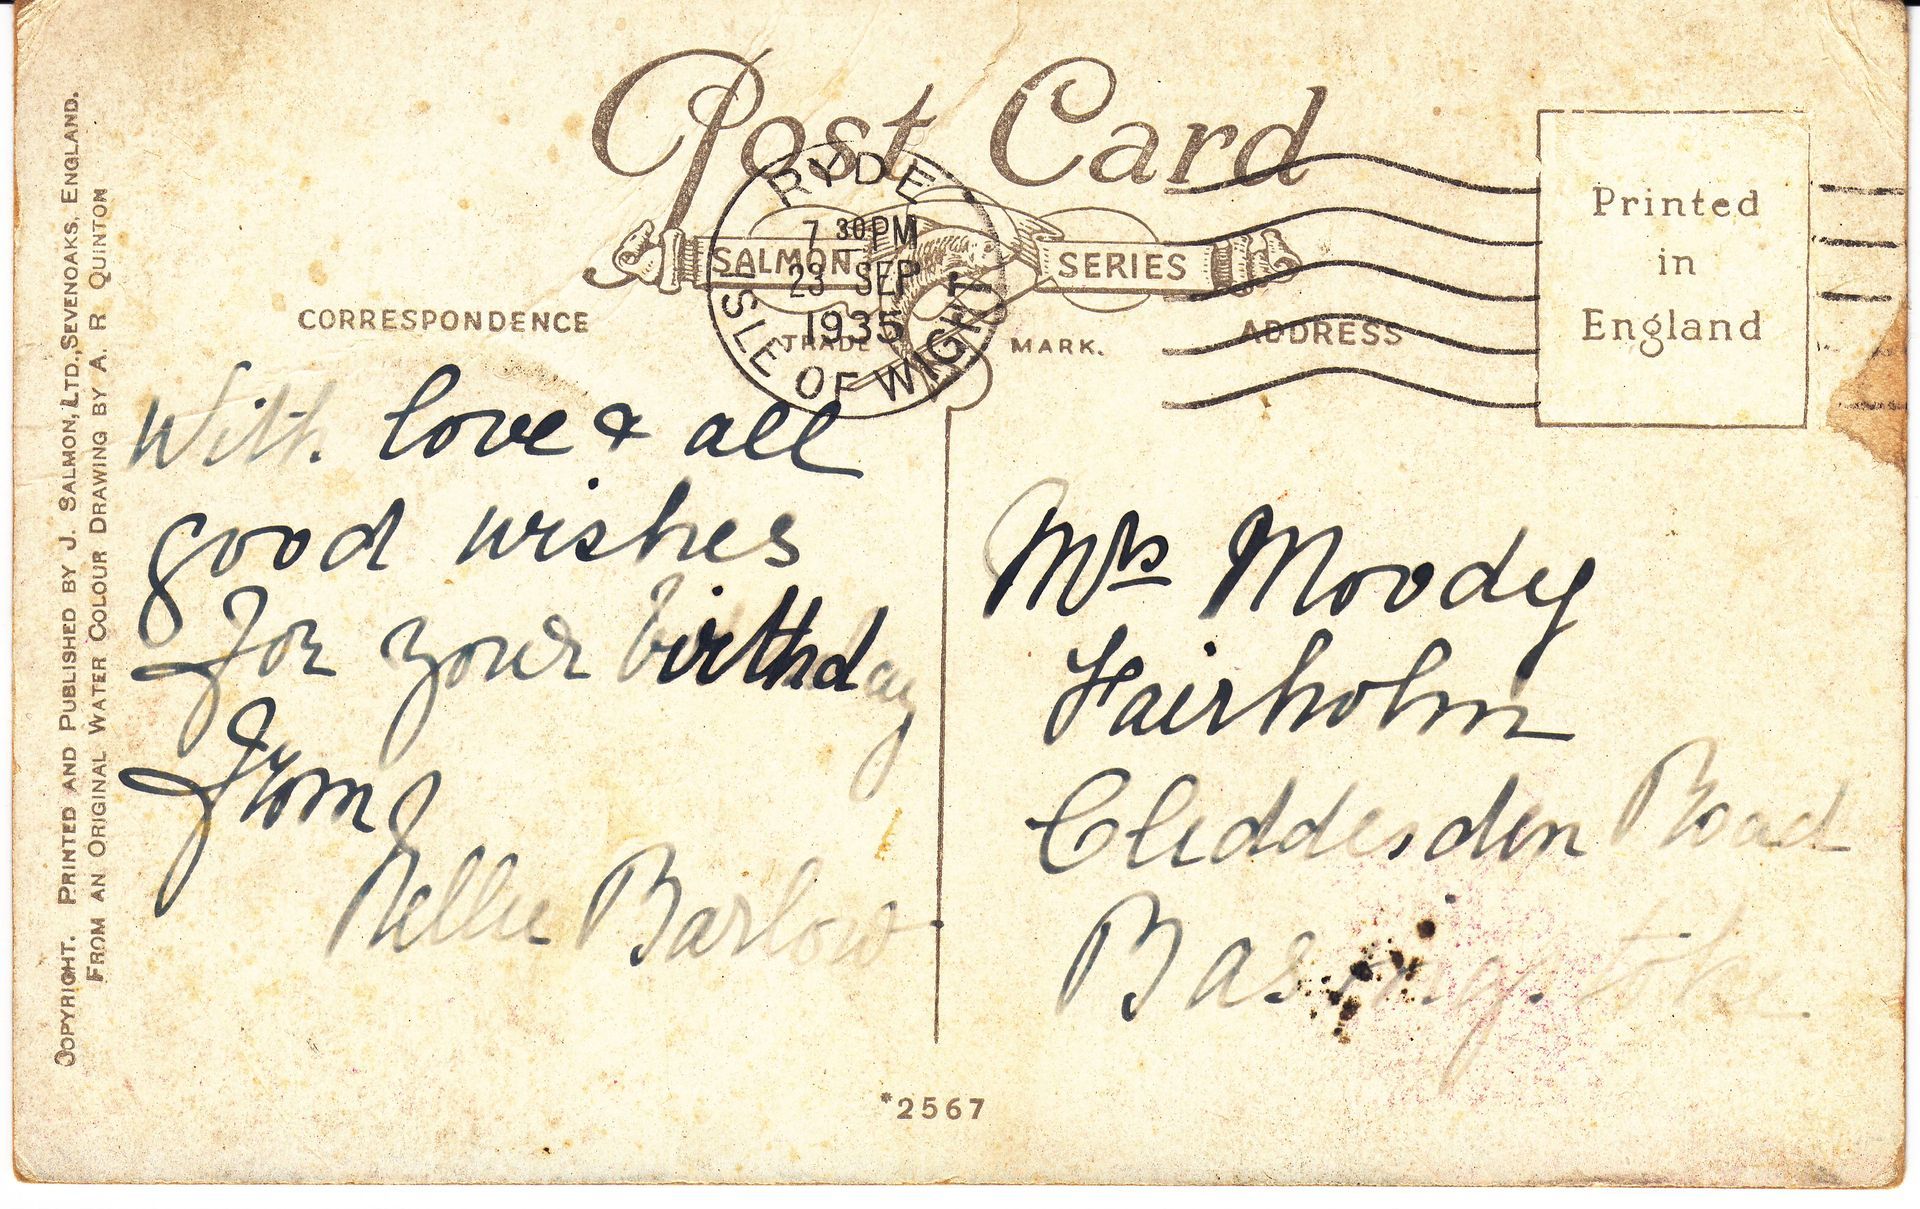 Post Card
RYDE
7 30 PM
23 SEP
1935
ISLE OF WIGHT
SALMON SERIES
TRADE MARK.
CORRESPONDENCE
ADDRESS
Printed
in
England
With love & all
good wishes
for your birthday
from
Nellie Barlow
Mrs Moody
Fairholm
Cliddesden Road
Basingstoke
*2567
COPYRIGHT. PRINTED AND PUBLISHED BY J. SALMON, LTD., SEVENOAKS. ENGLAND.
FROM AN ORIGINAL WATER COLOUR DRAWING BY A. R QUINTON